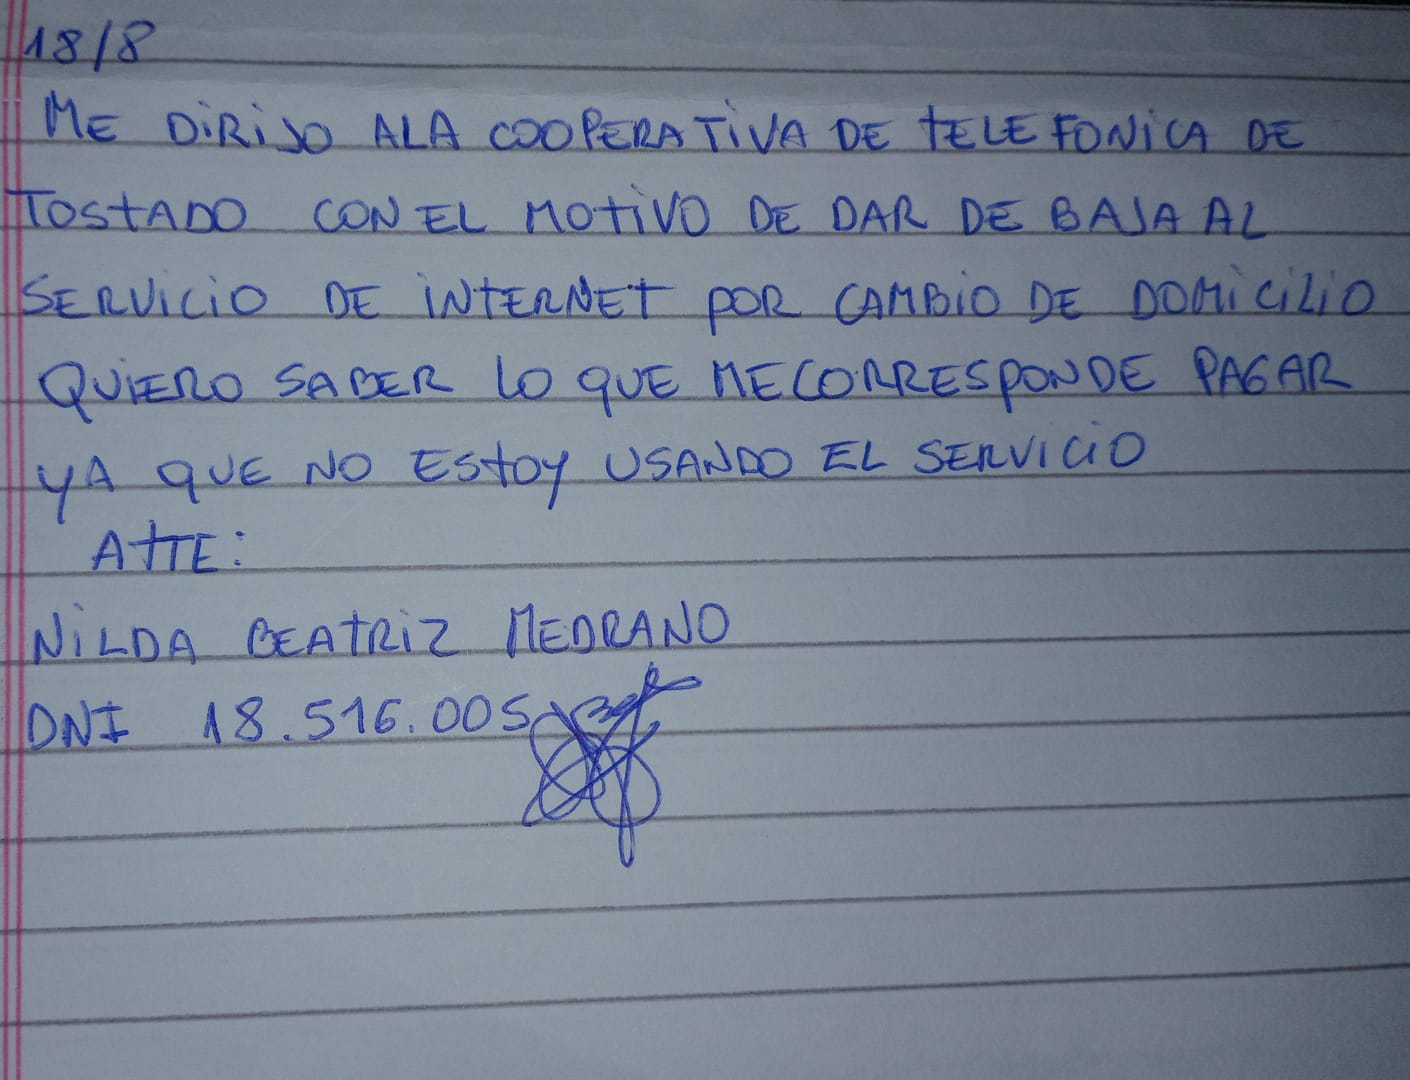 18/8
ME DiRiJO ALA COOPERATiVA DE tELEFONiCA DE
TOStADO CON EL MOtiVO DE DAR DE BAJA AL
SERViCiO DE iNtERNEt POR CAMBiO DE DOMiCiLiO
QUiERO SABER LO QUE MECORRESPONDE PAGAR
YA QUE NO EStOY USANDO EL SERViCiO
AtTE:
NiLDA BEAtRiZ MEDRANO
DNI 18.516.005